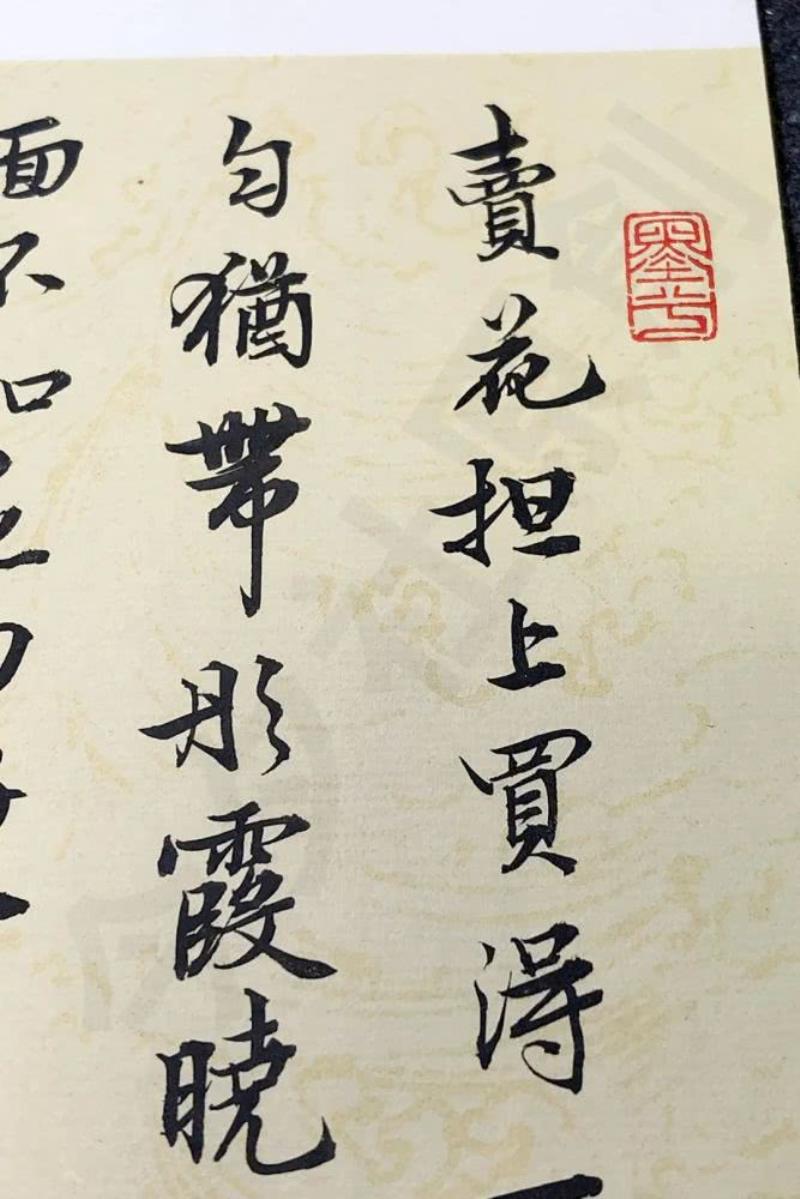 賣花担上買得
匀猶帶彤霞曉
面不如